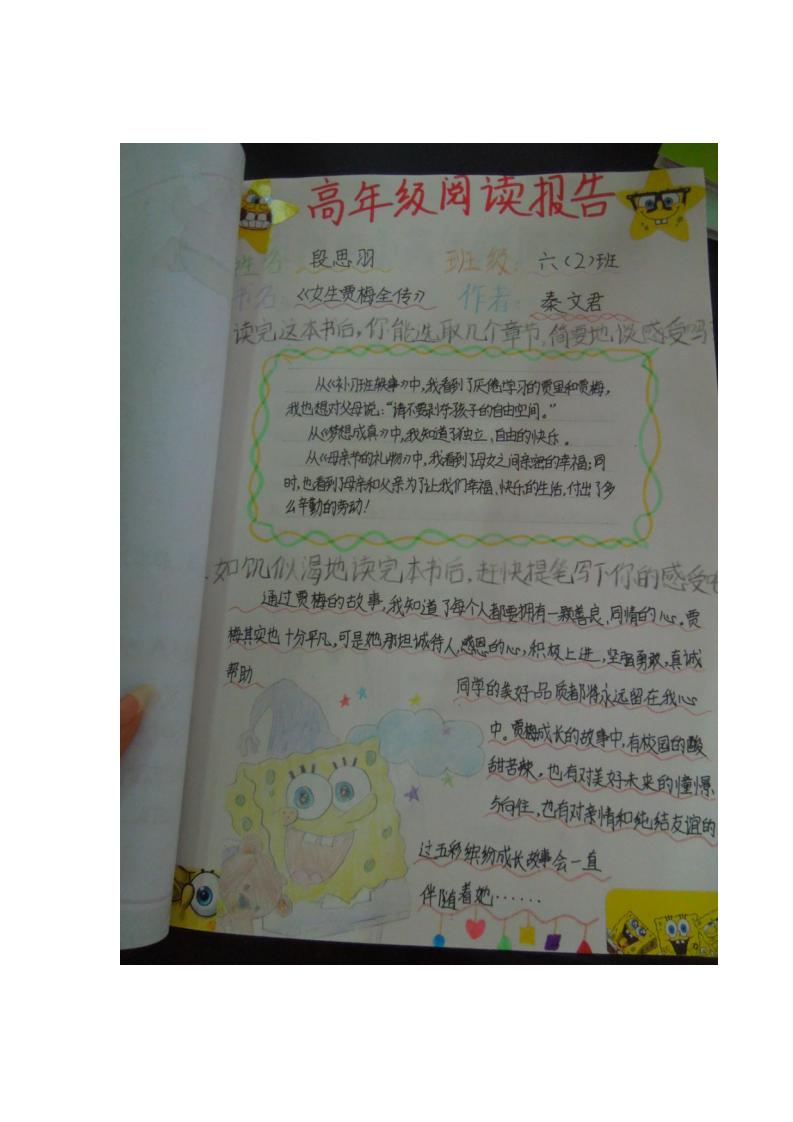 高年级阅读报告
姓名: 段思羽 班级: 六(2)班
书名: 《女生贾梅全传》 作者: 秦文君
读完这本书后,你能选取几个章节,简要地谈感受吗?
从《补习班轶事》中,我看到了厌倦学习的贾里和贾梅,
我也想对父母说:“请不要剥夺孩子的自由空间。”
从《梦想成真》中,我知道了独立、自由的快乐。
从《母亲节的礼物》中,我看到了母女之间亲密的幸福;同
时,也看到了母亲和父亲为了让我们幸福、快乐的生活,付出了多
么辛勤的劳动!
如饥似渴地读完本书后,赶快提笔写下你的感受吧
通过贾梅的故事,我知道了每个人都要拥有一颗善良、同情的心。贾
梅其实也十分平凡,可是她那坦诚待人,感恩的心,积极上进,坚强勇敢,真诚
帮助
同学的美好品质都将永远留在我心
中。贾梅成长的故事中,有校园的酸
甜苦辣,也有对美好未来的憧憬
与向往,也有对亲情和纯洁友谊的
过五彩缤纷成长故事会一直
伴随着她······